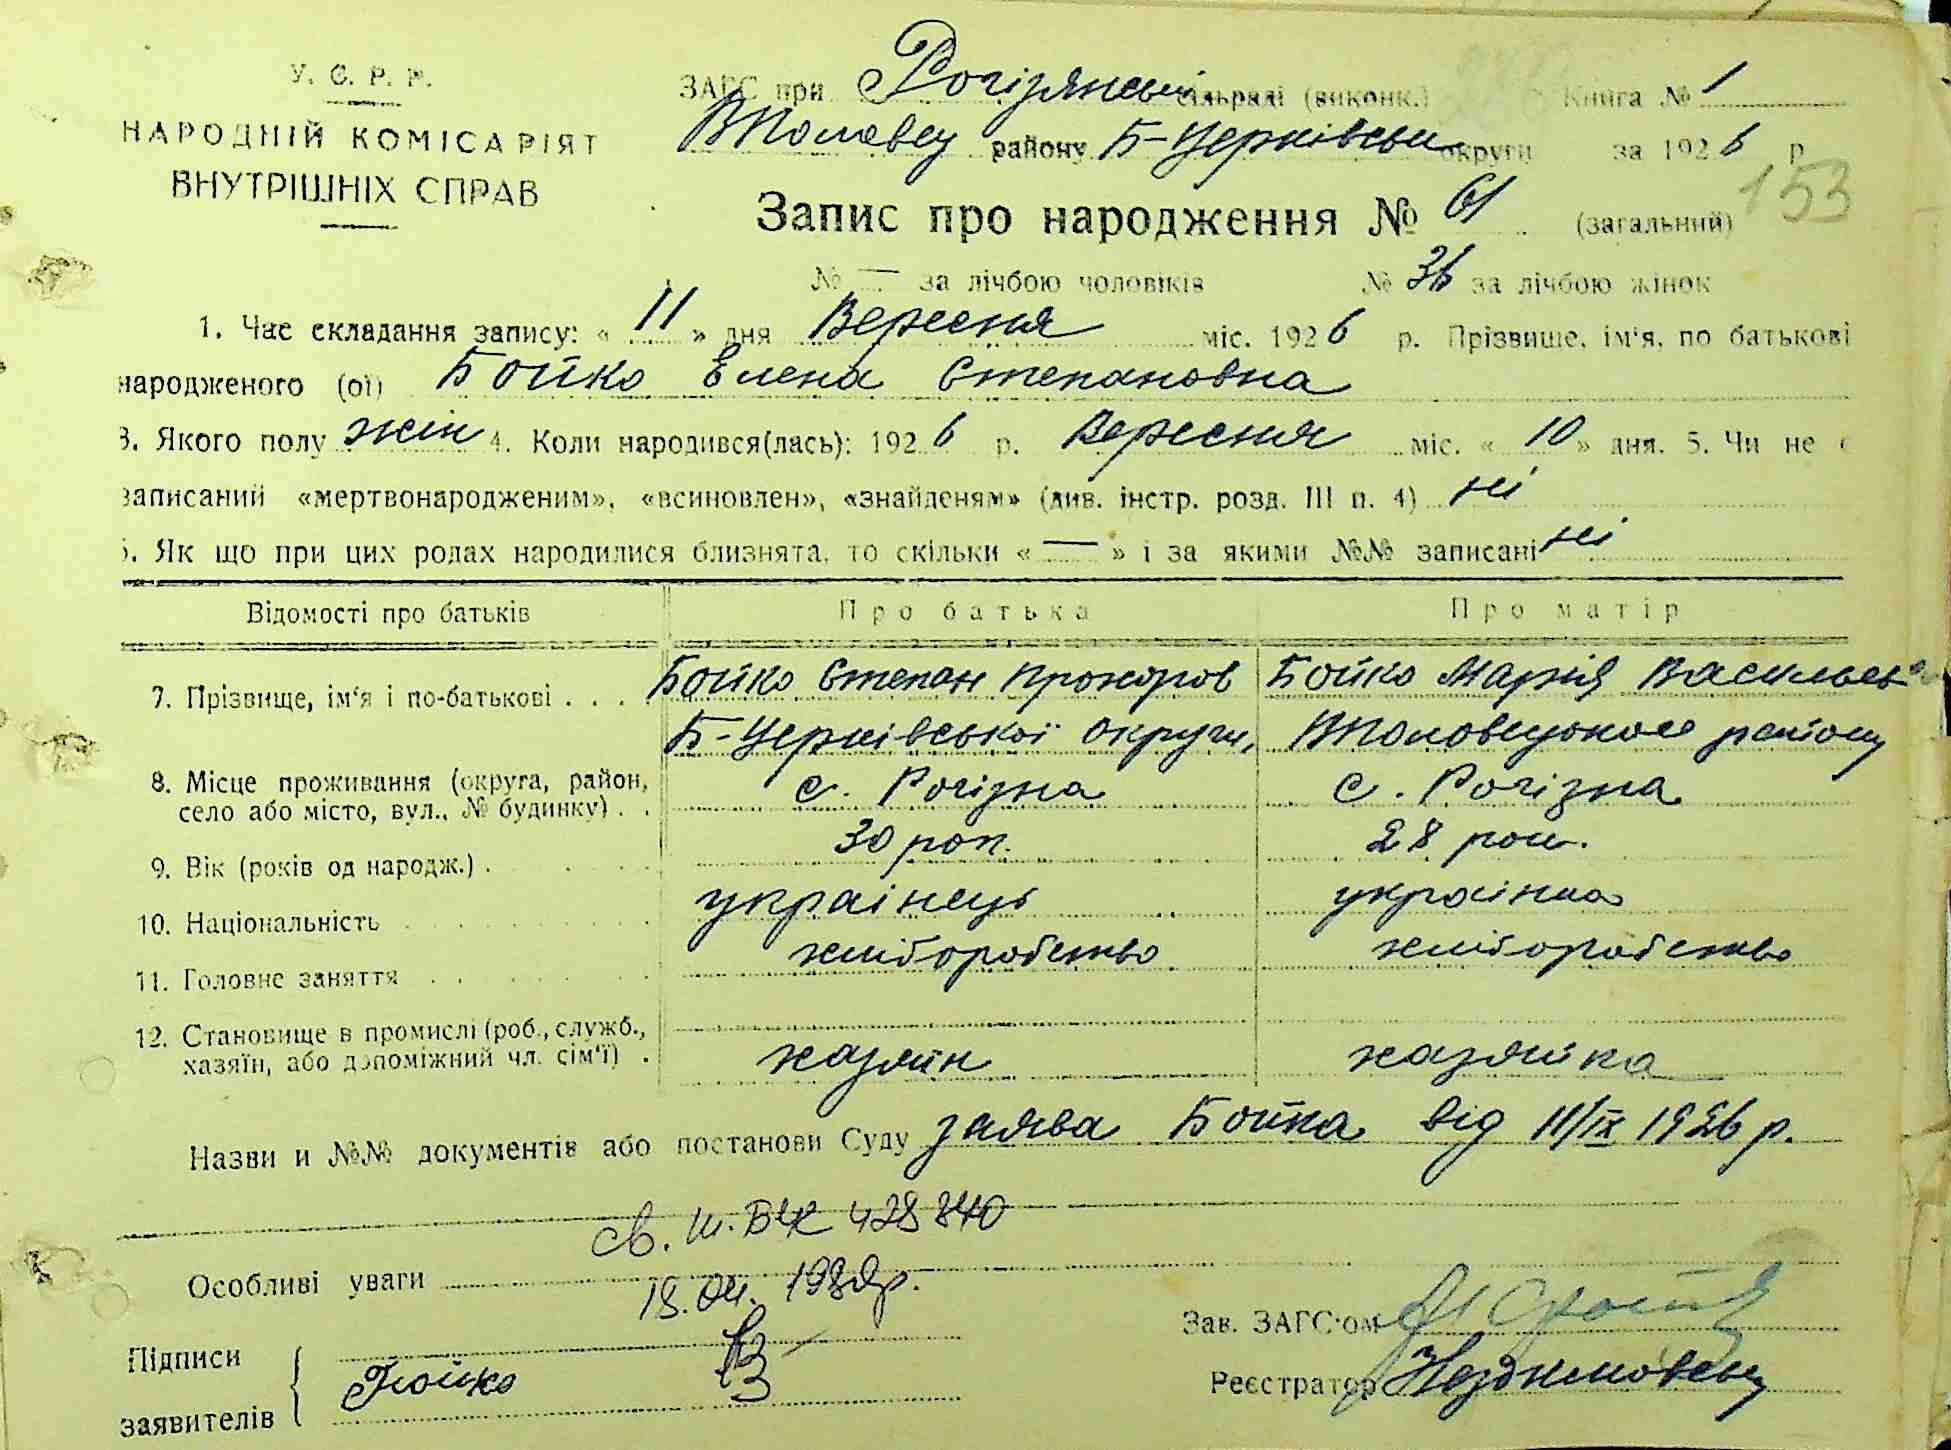 У. С. Р. Р.
НАРОДНІЙ КОМІСАРІЯТ
ВНУТРІШНІХ СПРАВ
ЗАГС при Рогізянській сільраді (виконк.) Книга № 1
району Б-Церківськ округи за 1926 р
153
Запис про народження № 61 (загальний)
№ — за лічбою чоловіків № 36 за лічбою жінок
1. Час складання запису: « 11 » дня Вересня міс. 1926 р. Прізвище, ім'я, по батькові
народженого (ої) Бойко Елена Степановна
3. Якого полу жін 4. Коли народився(лась): 1926 р. Вересня міс. « 10 » дня. 5. Чи не є
записаний «мертвонародженим», «всиновлен», «знайденям» (див. інстр. розд. III п. 4) ні
6. Як що при цих родах народилися близнята, то скільки « — » і за якими №№ записані ні
Відомості про батьків Про батька Про матір
7. Прізвище, ім'я і по-батькові . . . . Бойко Степан Прохоров Бойко Марія Васильевна
Б-Церківської округи, району
8. Місце проживання (округа, район, с. Рогізна с. Рогізна
село або місто, вул., № будинку) . .
9. Вік (років од народж.) . 30 рок. 28 рок.
10. Національність українець українка
11. Головне заняття хліборобство хліборобство
12. Становище в промислі (роб., служб.,
хазяїн, або допоміжний чл. сім'ї) . хазяїн хазяйка
Назви и №№ документів або постанови Суду заява Бойка від 11/IX 1926 р.
св. 428840
Особливі уваги 18.04. р.
Зав. ЗАГС'ом
Підписи
заявителів Бойко
Реєстратор